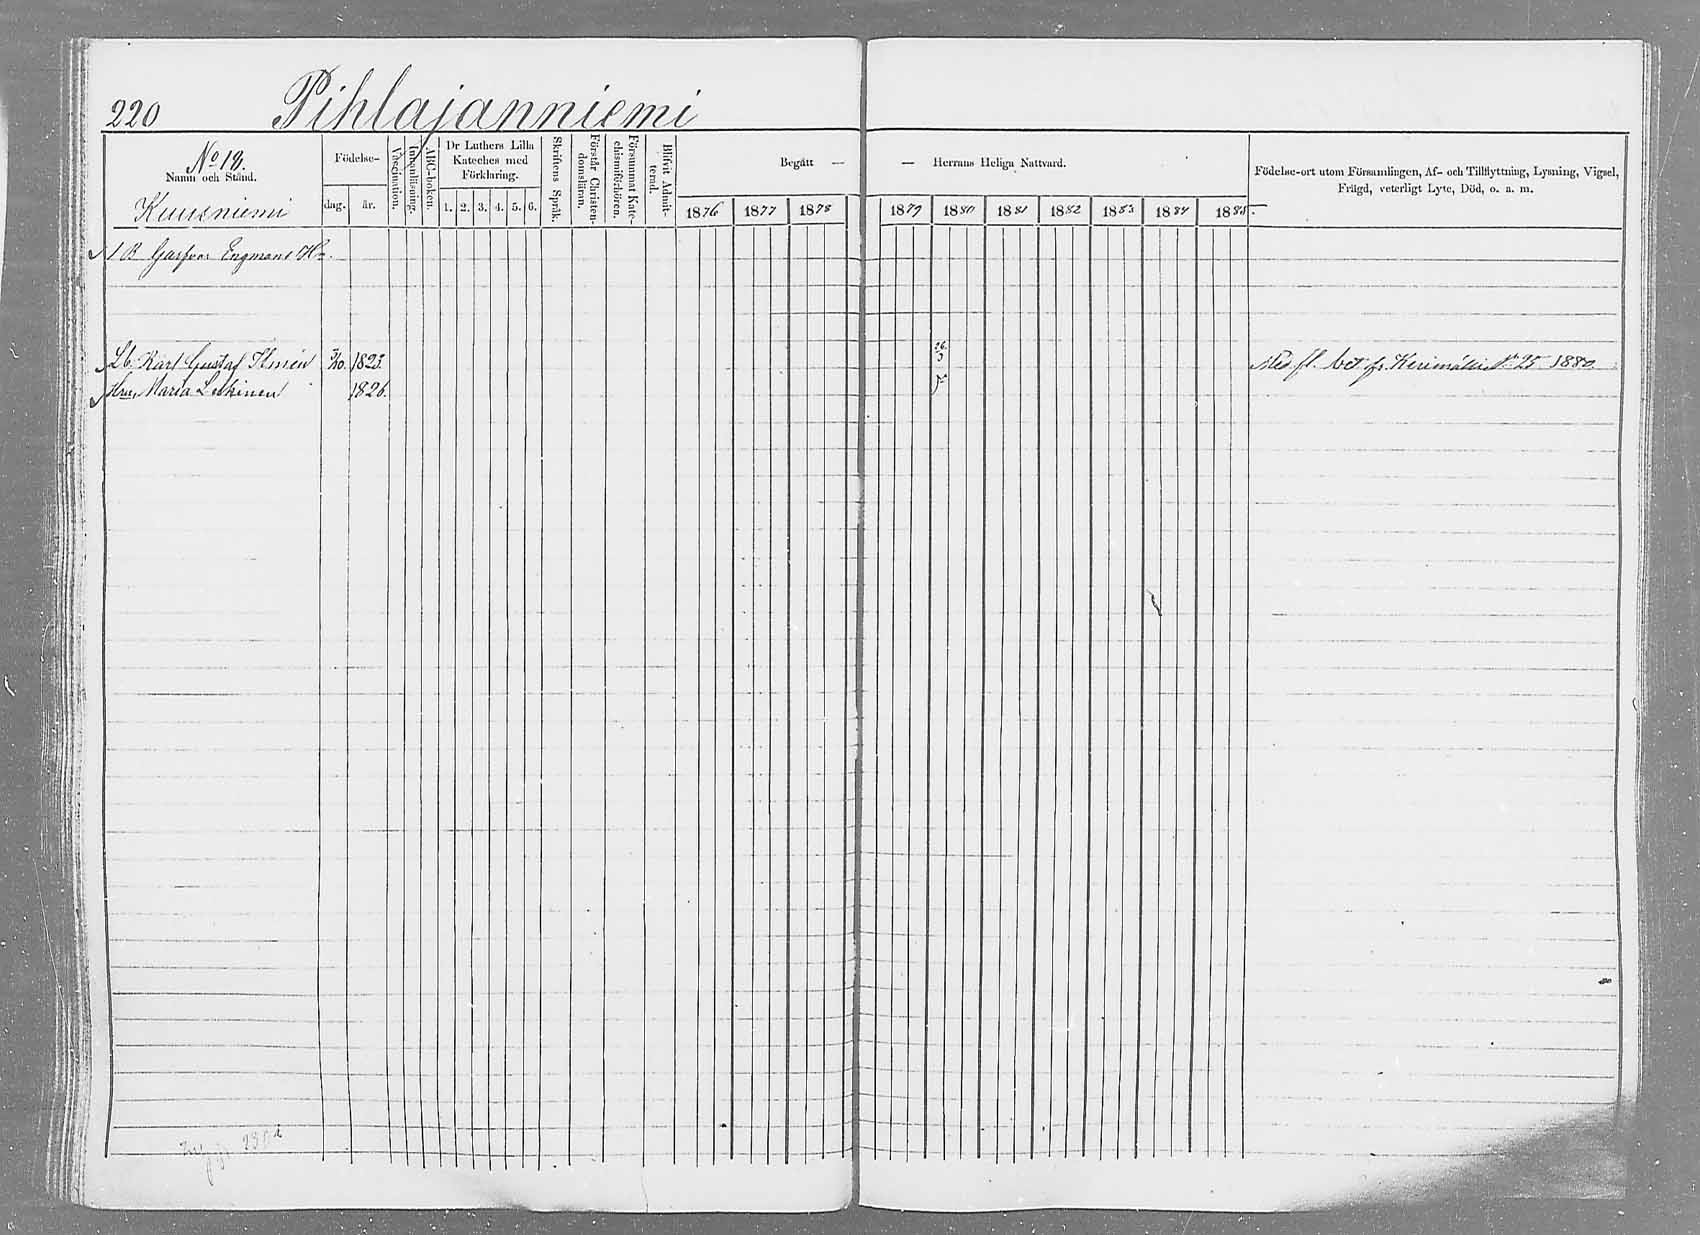 220 Pihlajanniemi
No 12.
Namn och Stånd.
Kuusniemi
Födelse-
dag. år.
Vaccination.
Innanläsning.
ABC-boken.
Dr Luthers Lilla Kateches med Förklaring.
1. 2. 3. 4. 5. 6.
Skriftens Språk.
Förstår Christendomsläran.
Försummat Katechismiförhören.
Blifvit Admitterad.
Begått — — Herrans Heliga Nattvard.
1876 1877 1878 1879 1880 1881 1882 1883 1884 1885
Födelse-ort utom Församlingen, Af- och Tillflyttning, Lysning, Vigsel,
Frägd, veterligt Lyte, Död, o. a. m.
1 B Engmans
Karl Gustaf Ilmén 1823. 26/3 Med fl. bet. fr. Kerimäki No 25 1880
Hru Maria 1826.